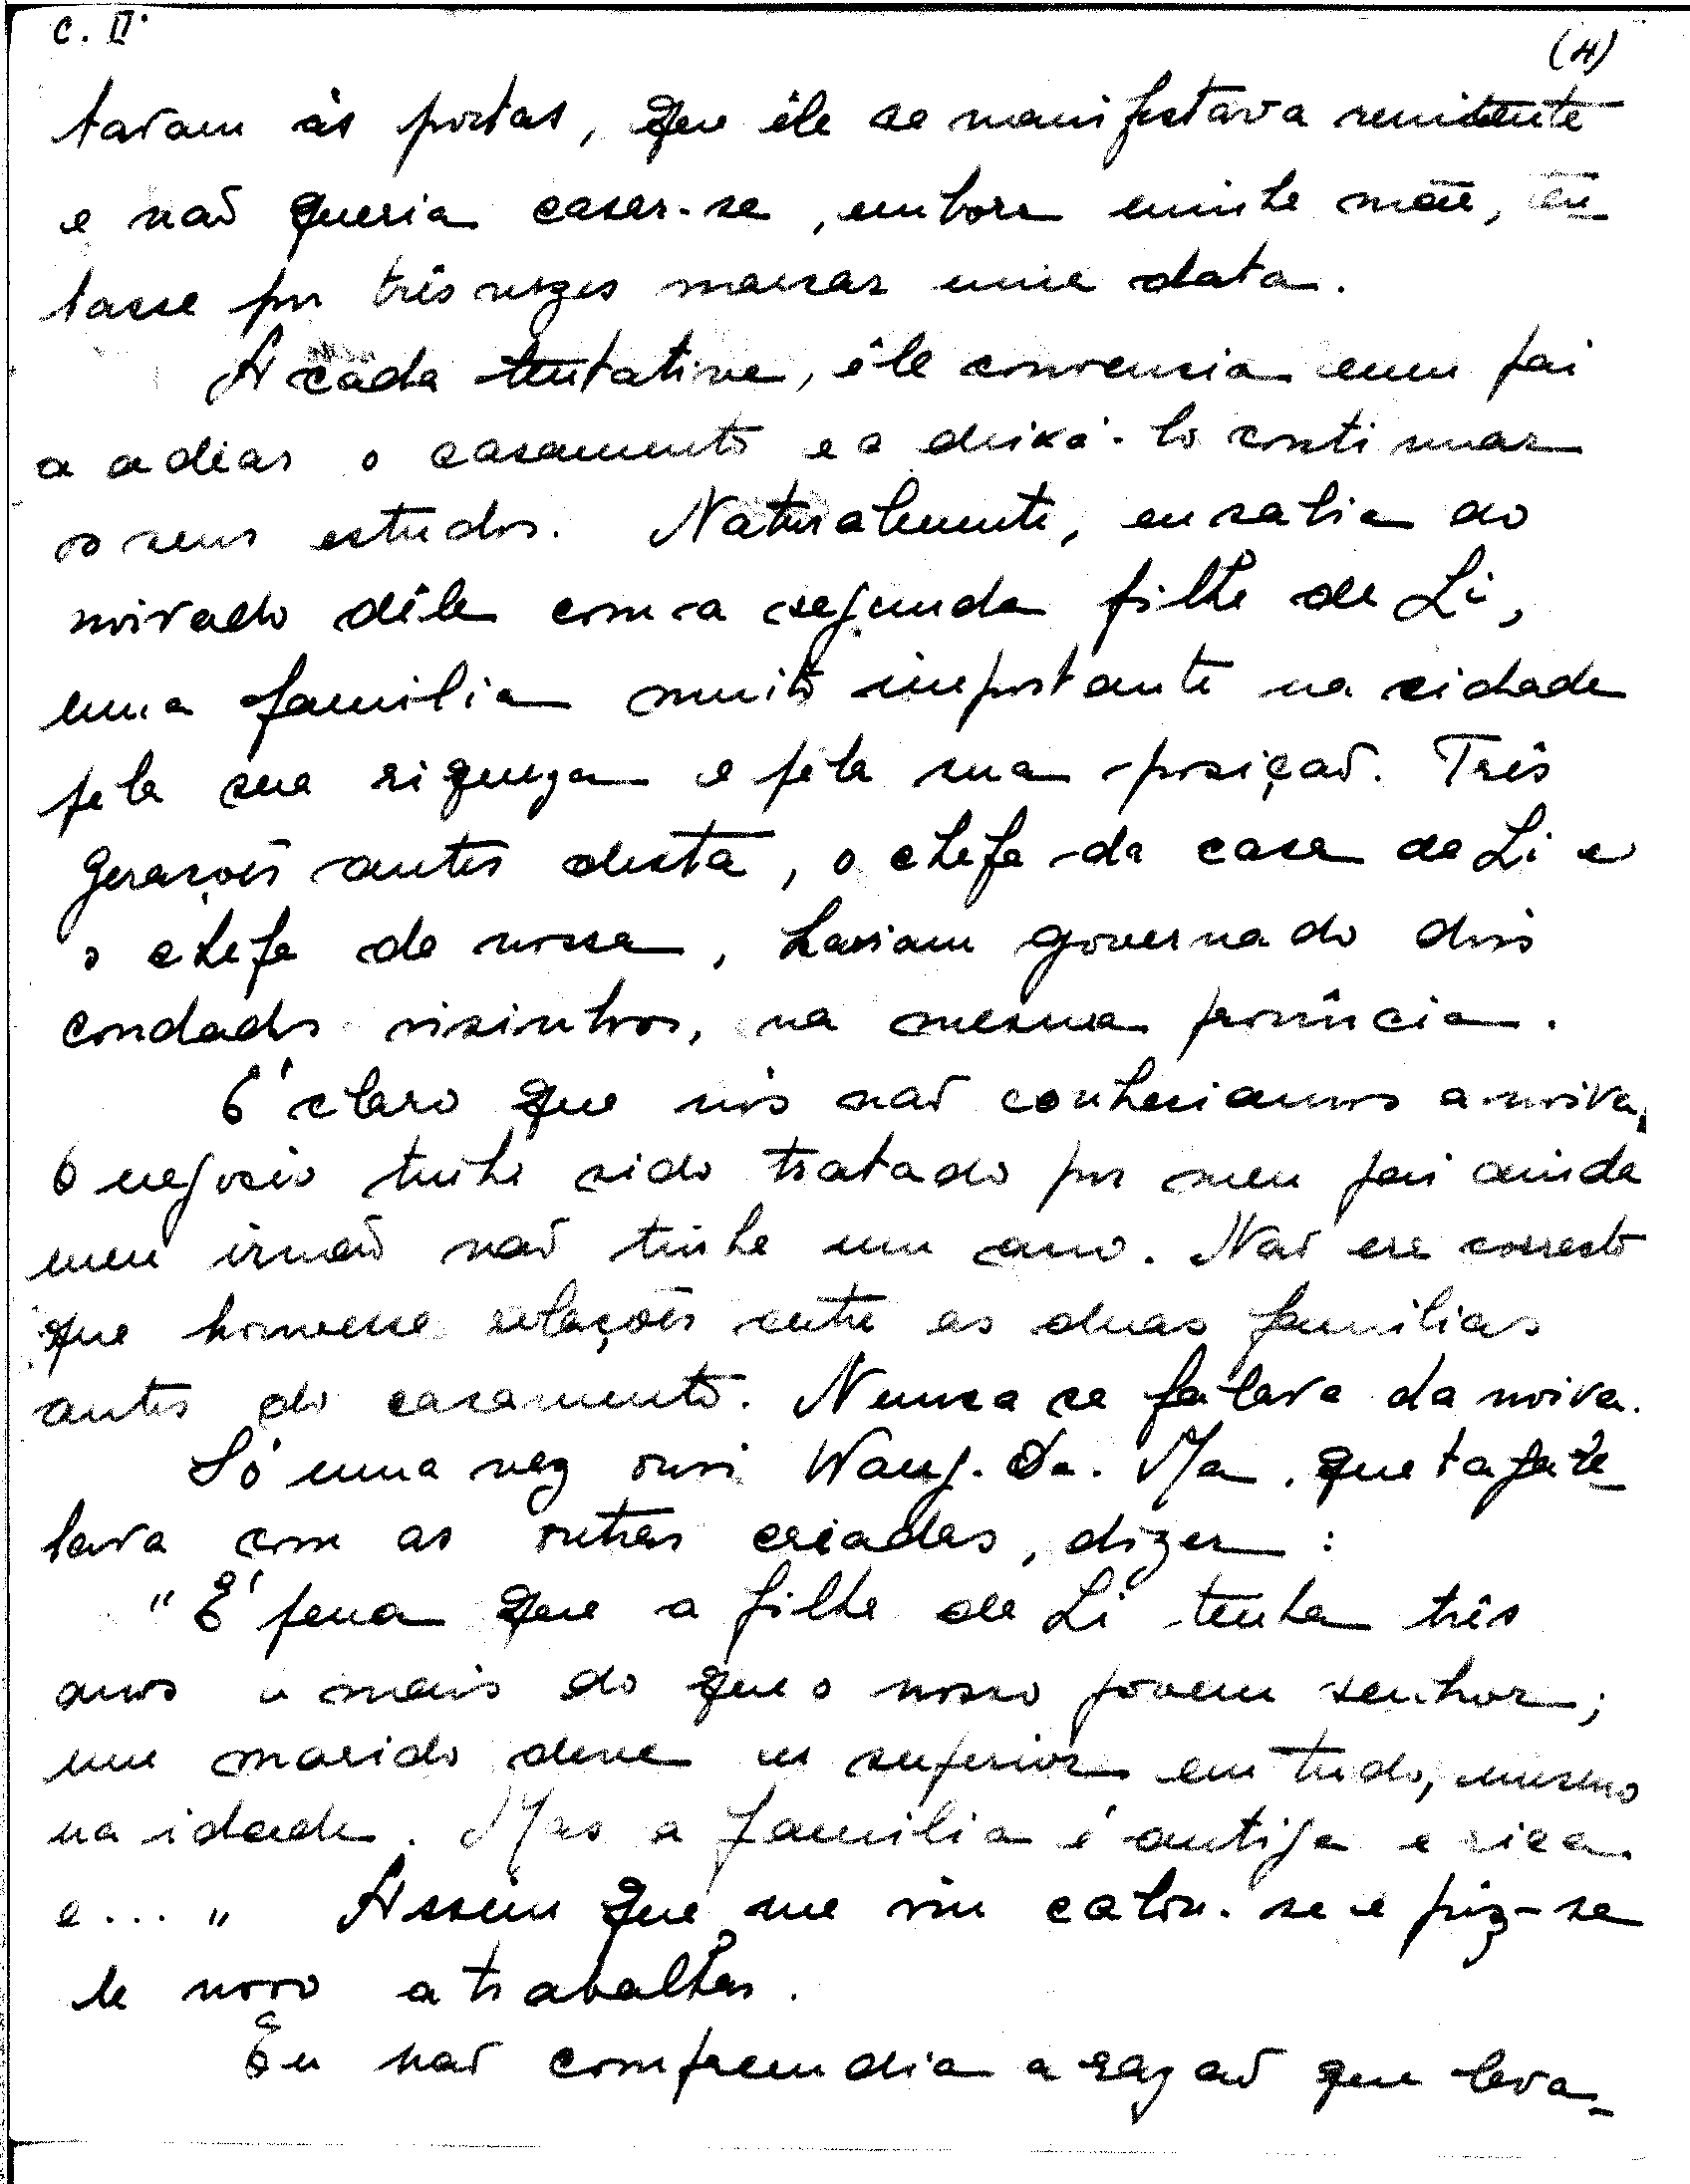 C. II.
(4)
tavam às portas, que êle se manifestava renitente
e não queria casar-se, embora minha mãe, ten
tasse por três vezes marcar uma data.
A cada tentativa, êle convencia meu pai
a adiar o casamento e a deixá-lo continuar
os seus estudos. Naturalmente, eu sabia do
noivado dêle com a segunda filha de Li,
uma familia muito importante na cidade
pela sua riqueza e pela sua posição. Três
gerações antes desta, o chefe da casa de Li e
o chefe da nossa, haviam governado dois
condados visinhos, na mesma província.
É claro que nós não conheciamos a noiva,
O negocio tinha sido tratado por meu pai ainda
meu irmão não tinha um ano. Não era correcto
que houvesse relações entre as duas familias
antes do casamento. Nunca se falava da noiva.
Só uma vez ouvi Wang-Da-Ma, que tagare-
lava com as outras criadas, dizer:
"É pena que a filha de Li tenha três
anos a mais do que o nosso jovem senhor;
um marido deve ser superior em tudo, mesmo
na idade. Mas a familia é antiga e rica
e..." Assim que me viu calou-se e poz-se
de novo a trabalhar.
Eu não compreendia a razão que leva-